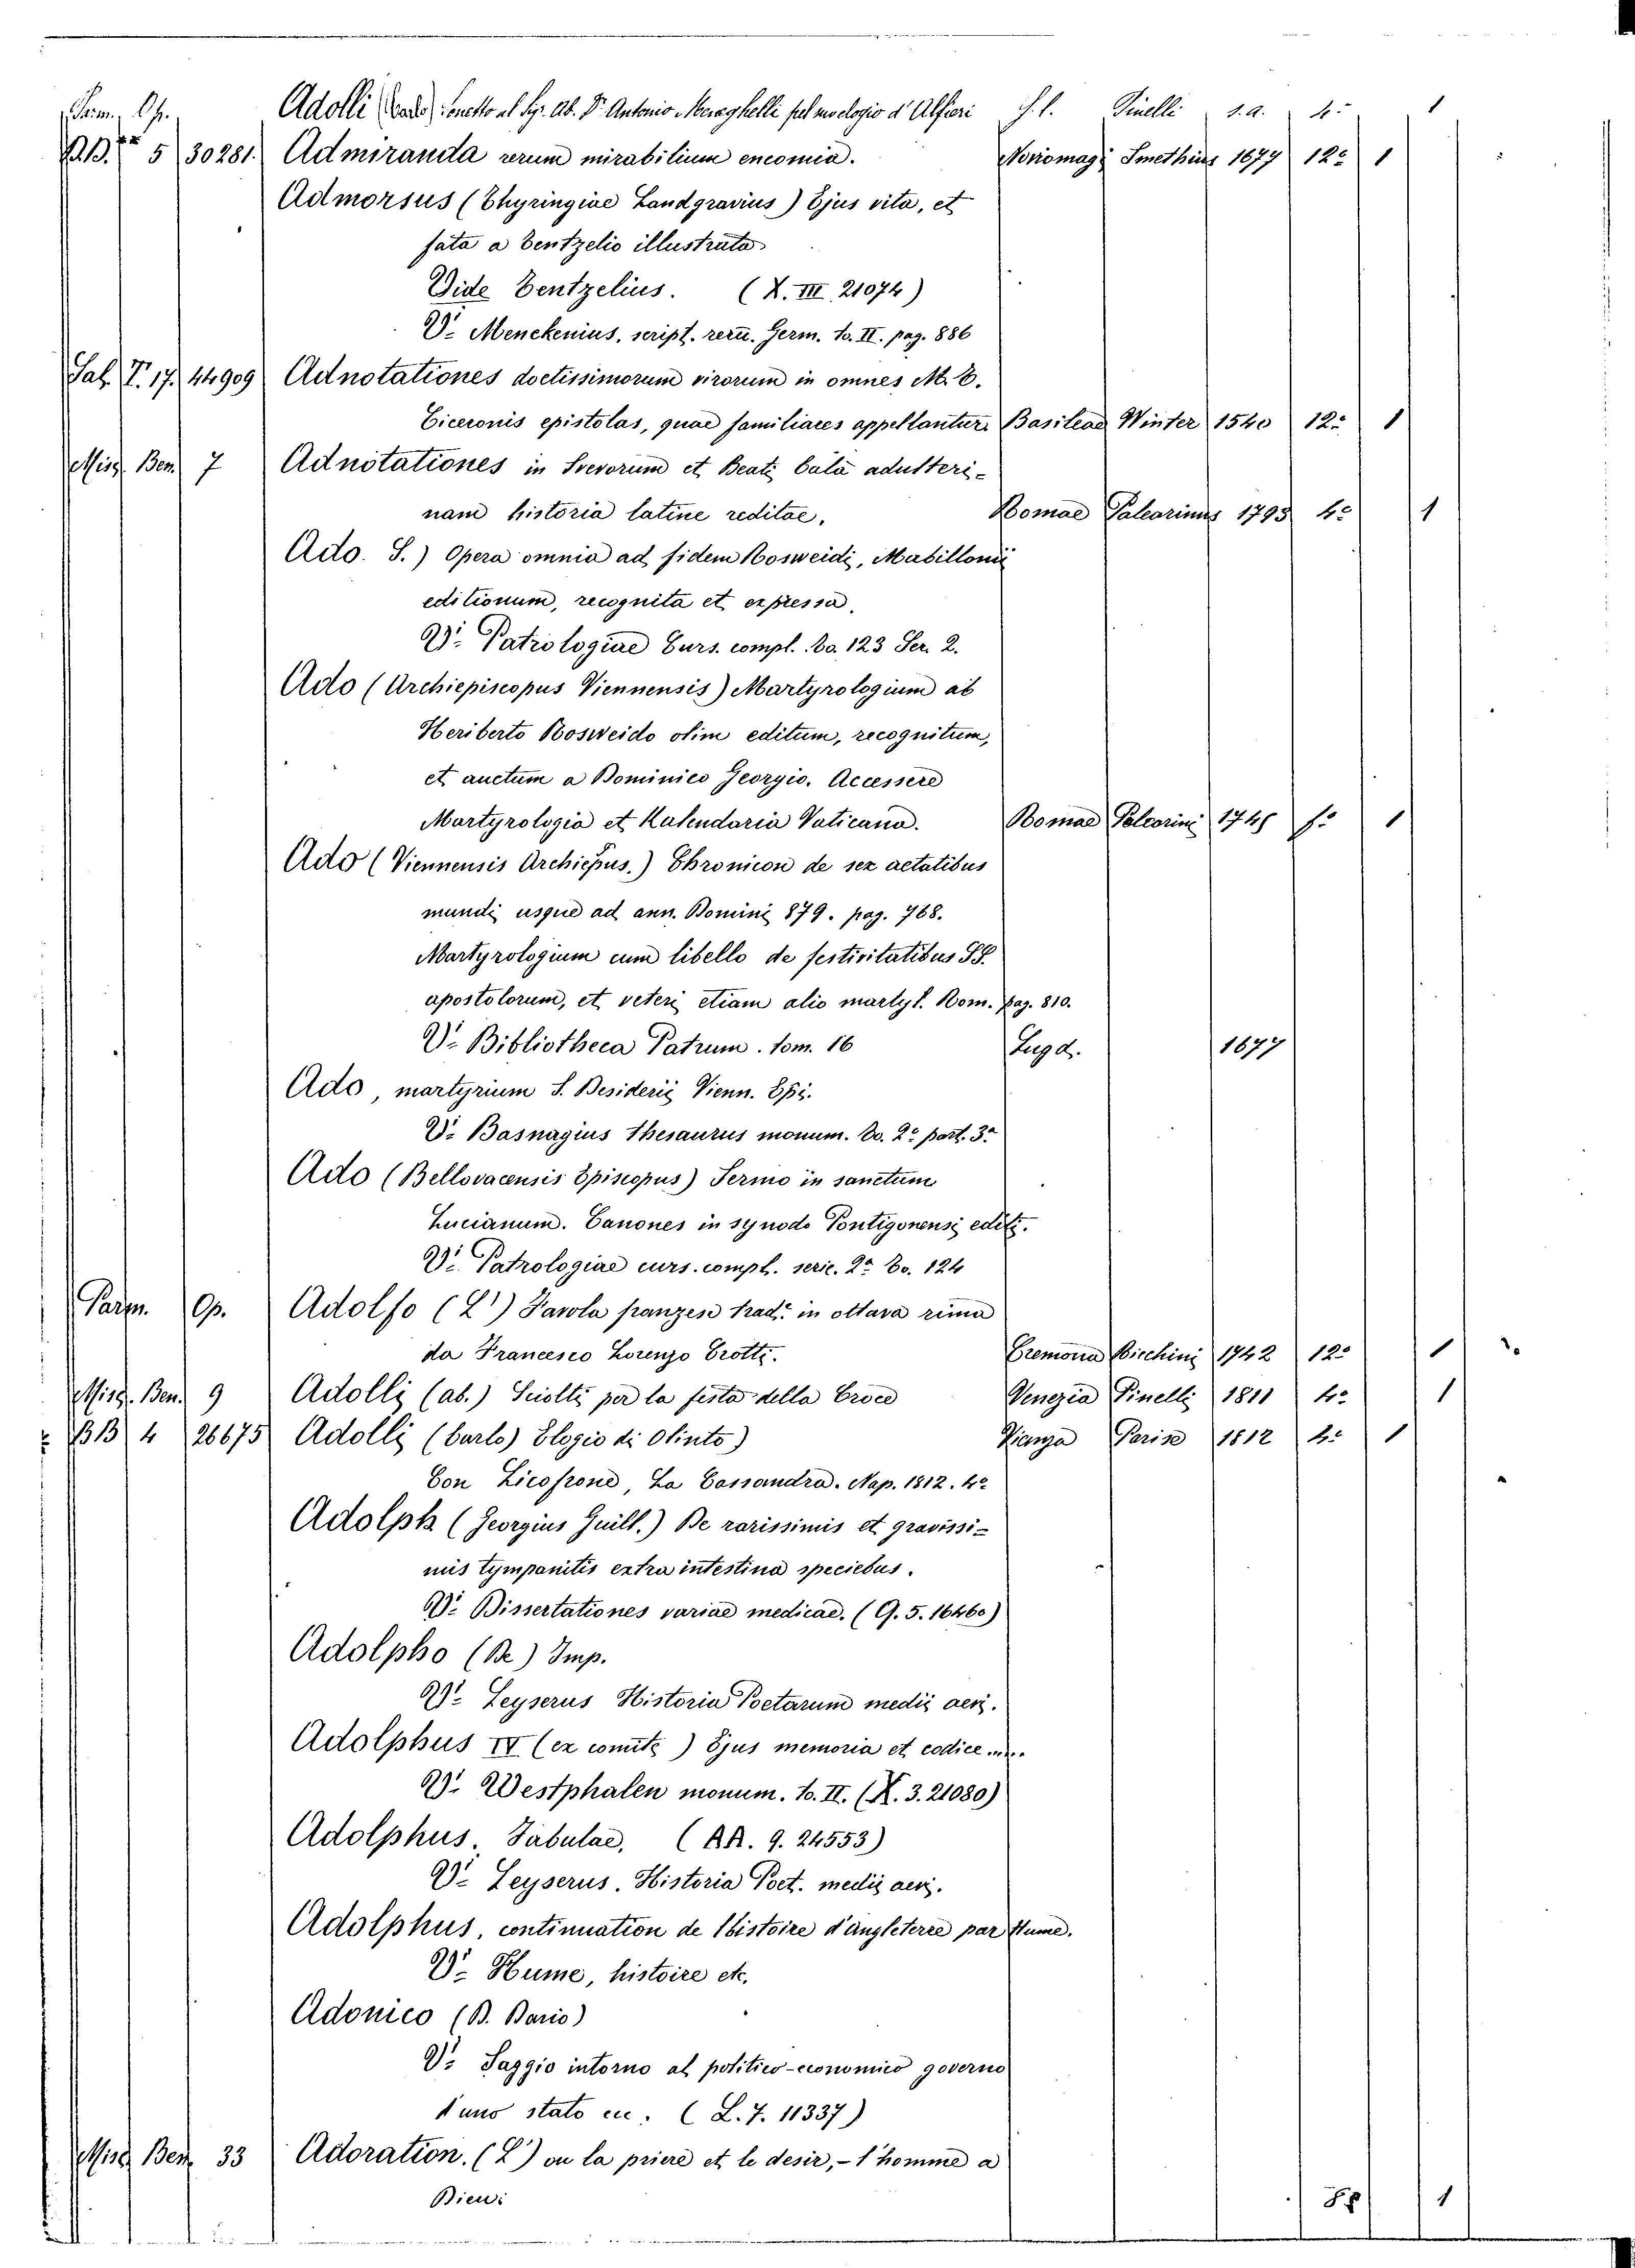 Parm. Op. Adolli (Carlo) Sonetto al Sig. Ab. Dr. Antonio Meneghelli pel suo elogio d'Alfieri S. l. Pinelli s.a. 4º 1
BB. 5 30281. Admiranda rerum mirabilium encomia. Noviomagi Smethius 1677 12º 1
Admorsus (Thyringiae Landgravius) Ejus vita, et
fata a Tentzelio illustrata
Vide Tentzelius. (X. III 21074)
Vi. Menckenius, script. reru. Germ. to. II. pag. 886
Sal. T. 17. 44909 Adnotationes doctissimorum virorum in omnes M. T.
Ciceronis epistolas, quae familiares appellantur. Basileae Winter 1540 12º 1
Misc. Ben. 7 Adnotationes in Svevorum et Beati Cala adulteri-
nam historia latine reditae. Romae Palearinus 1793 4º 1
Ado. S.) Opera omnia ad fidem Rosweidi, Mabillonii
editionum, recognita et expressa.
Vi. Patrologiae Curs. compl. to. 123 Ser. 2.
Ado (Archiepiscopus Viennensis) Martyrologium ab
Heriberto Rosweido olim editum, recognitum,
et auctum a Dominico Georgio. Accessere
Martyrologia et Kalendaria Vaticana. Romae Palearini 1745 f.º 1
Ado (Viennensis Archiepus.) Chronicon de sex aetatibus
mundi usque ad ann. Domini 879. pag. 768.
Martyrologium cum libello de festivitatibus SS.
apostolorum, et veteri etiam alio martyl. Rom. pag. 810.
Vi. Bibliotheca Patrum. tom. 16 Lugd. 1677
Ado, martyrium S. Desiderii Vienn. Epi.
Vi. Basnagius Thesaurus monum. to. 2º part. 3ª
Ado (Bellovacensis Episcopus) Sermo in sanctum
Lucianum. Canones in synodo Pontigonensi editi.
Vi. Patrologiae curs. compl. serie. 2ª to. 124
Parm. Op. Adolfo (L') Favola franzese trad. in ottava rima
da Francesco Lorenzo Crotti. Cremona Ricchini 1742 12º 1
Misc. Ben. 9 Adolli (ab.) Sciolti per la festa della Croce Venezia Pinelli 1811 4º 1
BB 4 26675 Adolli (Carlo) Elogio di Olinto) Parise 1812 4º 1
Con Licofrone, La Cassandra. Nap. 1812. 4º
Adolph (Georgius Guill.) De rarissimis et gravissi-
mis tympanitis extra intestina speciebus.
Vi. Dissertationes variae medicae. (G. 5. 16460)
Adolpho (De) Imp.
Vi. Leyserus Historia Poetarum medii aevi.
Adolphus IV (ex comite) Ejus memoria et codice ....
Vi. Westphalen monum. to. II. (X. 3. 21080)
Adolphus. Fabulae, (AA. 9. 24553)
Vi. Leyserus. Historia Poet. medii aevi.
Adolphus, continuation de l'histoire d'Angleterre par Hume.
Vi. Hume, histoire etc.
Adonico (B. Bario)
Vi. Saggio intorno al politico-economico governo
d'uno stato ec. (L. 7. 11337)
Misc. Ben. 33 Adoration. (L') ou la priere et le desir, - l'homme a
Dieu: 8º 1